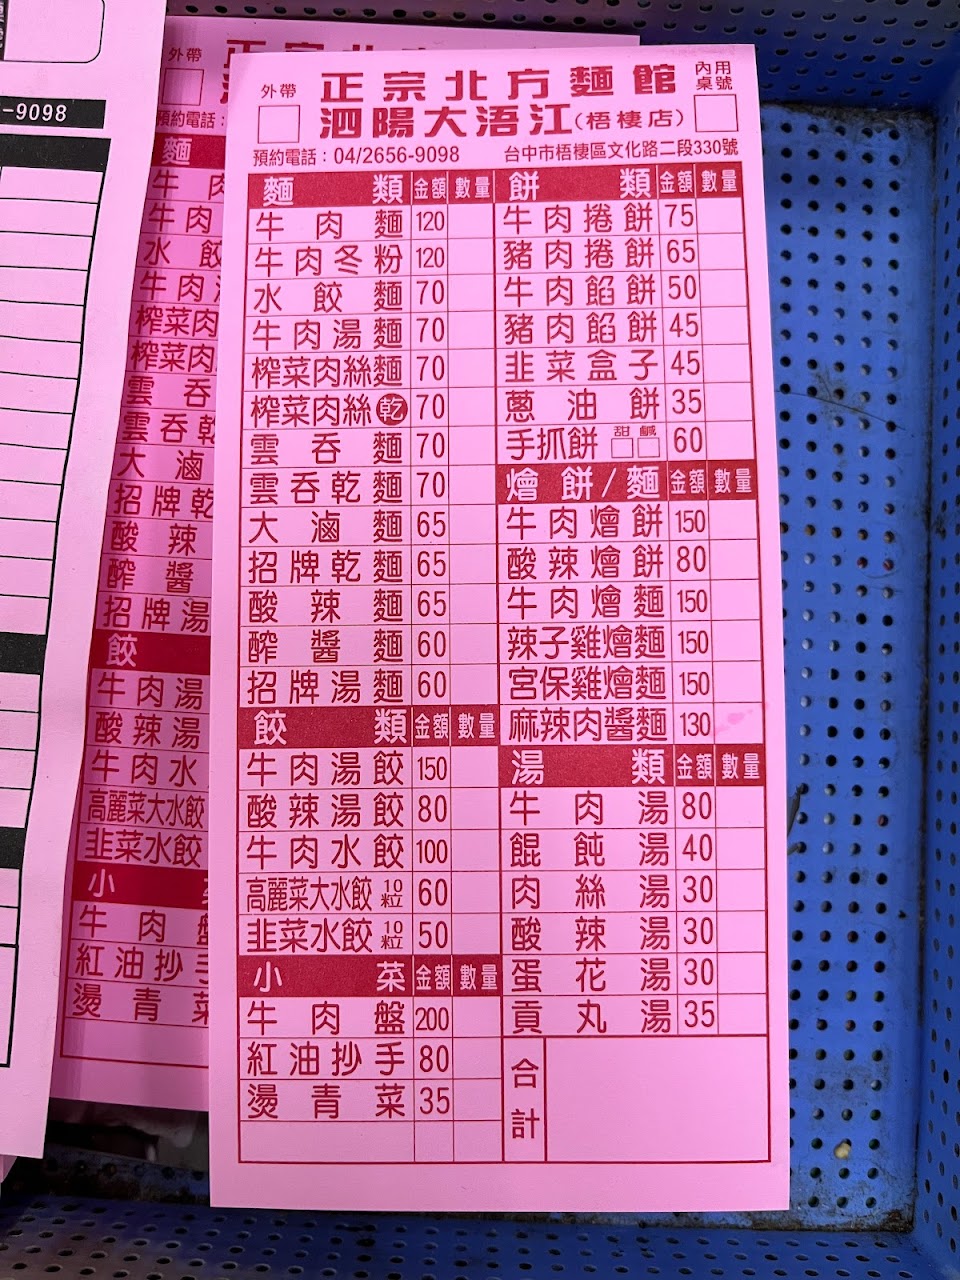 外帶
正宗北方麵館
泗陽大浯江(梧棲店)
內用
桌號
預約電話：04/2656-9098 台中市梧棲區文化路二段330號
麵類 金額 數量
牛肉麵 120
牛肉冬粉 120
水餃麵 70
牛肉湯麵 70
榨菜肉絲麵 70
榨菜肉絲乾 70
雲吞麵 70
雲吞乾麵 70
大滷麵 65
招牌乾麵 65
酸辣麵 65
醡醬麵 60
招牌湯麵 60
餃類 金額 數量
牛肉湯餃 150
酸辣湯餃 80
牛肉水餃 100
高麗菜大水餃 10粒 60
韭菜水餃 10粒 50
小菜 金額 數量
牛肉盤 200
紅油抄手 80
燙青菜 35
餅類 金額 數量
牛肉捲餅 75
豬肉捲餅 65
牛肉餡餅 50
豬肉餡餅 45
韭菜盒子 45
蔥油餅 35
手抓餅 甜□ 鹹□ 60
燴餅/麵 金額 數量
牛肉燴餅 150
酸辣燴餅 80
牛肉燴麵 150
辣子雞燴麵 150
宮保雞燴麵 150
麻辣肉醬麵 130
湯類 金額 數量
牛肉湯 80
餛飩湯 40
肉絲湯 30
酸辣湯 30
蛋花湯 30
貢丸湯 35
合計
-9098
外帶
正宗北
預約電話：
麵
牛肉
牛肉
水餃
牛肉
榨菜肉
榨菜肉
雲吞
雲吞乾
大滷
招牌乾
酸辣
醡醬
招牌湯
餃
牛肉湯
酸辣湯
牛肉水
高麗菜大水餃
韭菜水餃
小
牛肉
紅油抄手
燙青菜